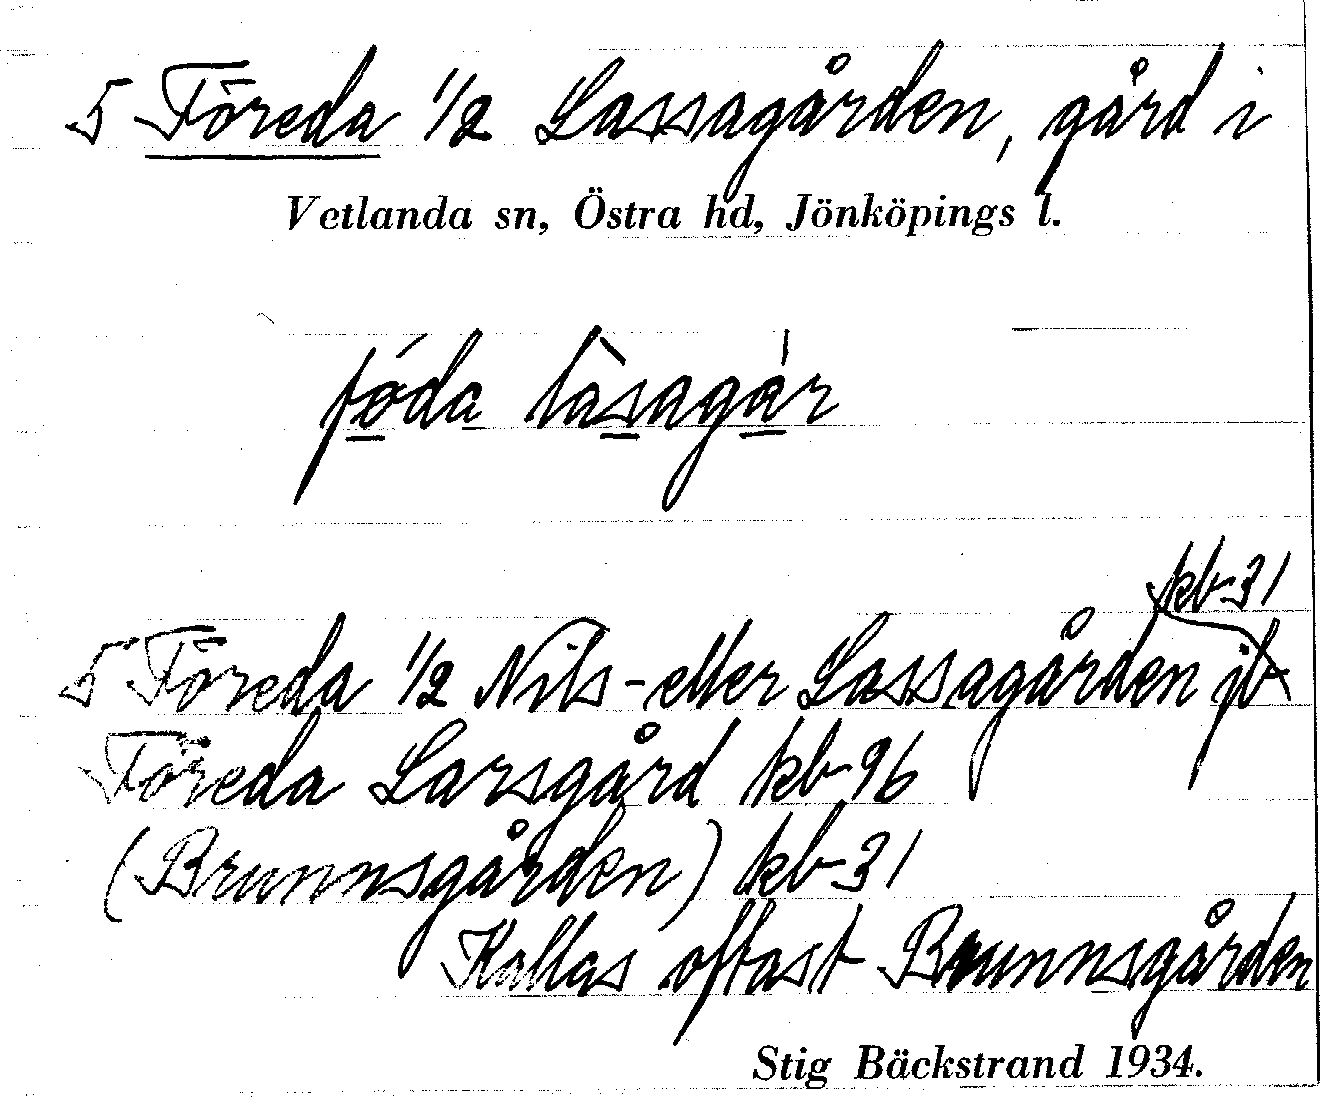 5 Föreda 1/2 Lassagården, gård i
Vetlanda sn, Östra hd, Jönköpings l.
föda làsagár
kb 31
5 Föreda 1/2 Nils- eller Lassagården jb
Föreda Larsgård kb 96
(Brunnsgården) kb 31
Kallas oftast Brunnsgården
Stig Bäckstrand 1934.